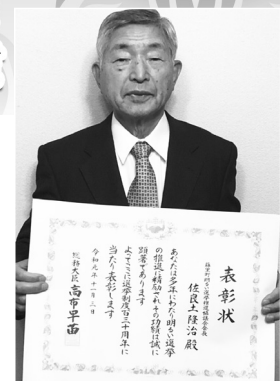 表彰状
佐良土隆治殿
あなたは多年にわたり明るい選挙
の推進に精励されその功績は誠に
顕著であります
よってここに選挙制度百三十周年に
当たり表彰します
令和元年十一月三日
総務大臣 高市早苗